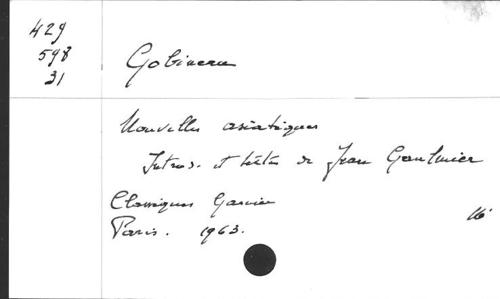 429
598
31
Gobineau
Nouvelles asiatiques
Introd. et textes de Jean Gaulmier
Classiques Garnier
Paris. 1963.
16°